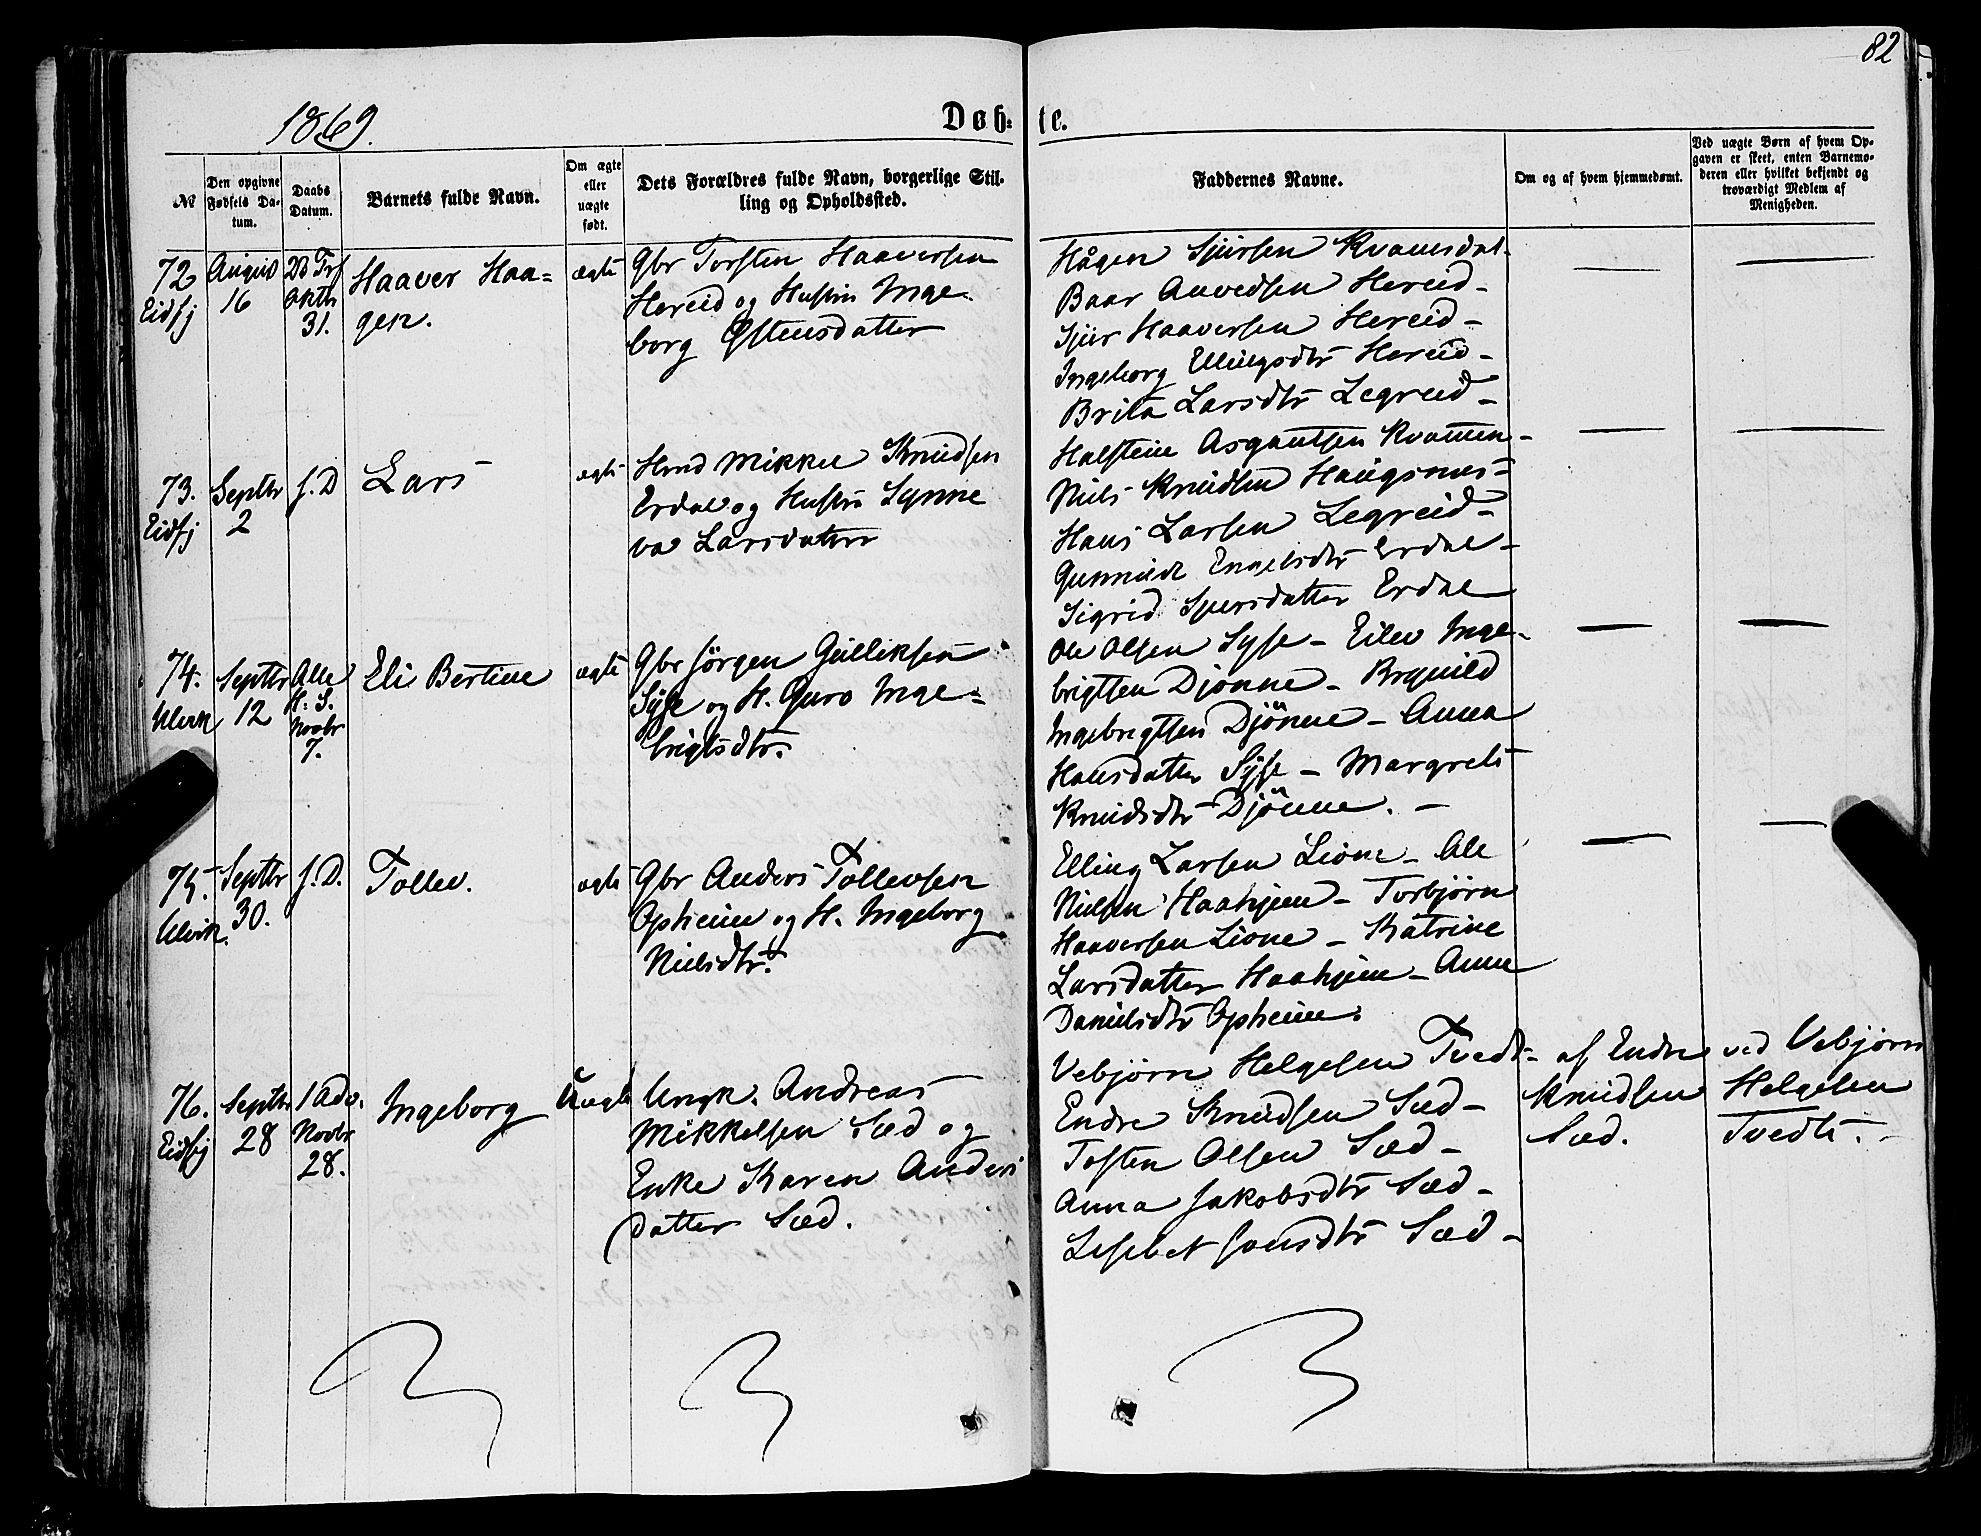 82
1869.
Døb-
te.
№
Den opgivne
Fødsels Da-
tum.
Daabs
Datum.
Barnets fulde Navn.
Om ægte
eller
uægte
født.
Dets Forældres fulde Navn, borgerlige Stil-
ling og Opholdssted.
Faddernes Navne.
Om og af hvem hjemmedøbt.
Ved uægte Børn af hvem Op-
gaven er skeet, enten Barnemo-
deren eller hvilket bekjendt og
troværdigt Medlem af
Menigheden.
72
Eidfj
August
16
Oktbr
31.
Haaver Haa-
gen.
ægte
Gbr Torsten Haaversen
Hereid og Hustru Inge-
borg Østensdatter
Hågen Sjursen Kvamsdal-
Baar Anvedsen Hereid-
Sjur Haaversen Hereid-
Ingeborg Ellingsdtr Hereid-
Brita Larsdtr Legreid-
73.
Eidfj
Septbr
2
s. D
Lars
ægte
Hmd Mikkel Knudsen
Erdal og Hustru Synne
va Larsdatter
Halstein Asgautsen Kvamen-
Niels Knudsen Haugsnes-
Hans Larsen Legreid-
Gunnild Engelsdtr Erdal-
Sigrid Sjursdatter Erdal
74.
Ulvik
Septbr
12
Alle
H. S.
Novbr
7.
Eli Bertine
ægte
Gbr Jörgen Gulliksen
Syse og H. Guro Inge-
brigtsdtr.
Ole Olsen Syse - Eilev Inge-
brigtsen Djönne - Brynild
Ingebrigtsen Djönne - Anna
Hansdatter Syse - Margrete
Knudsdtr Djönne. -
75.
Ulvik.
Septbr
30.
s. D.
Tollev.
ægte
Gbr Anders Tollevsen
Opheim og H. Ingeborg
Nielsdtr.
Elling Larsen Lione - Ole
Nielsen Haahjem - Torbjörn
Haaversen Lione - Katrine
Larsdatter Haahjem - Anna
Danielsdtr Opheim.
76.
Eidfj
Septbr
28
1 Adv.
Novbr
28.
Ingeborg
Uægte
Ungk. Andreas
Mikkelsen Sæd og
Enke Karen Anders
datter Sæd.
Vebjörn Helgesen Tvedt-
Endre Knudsen Sæd-
Tosten Olsen Sæd-
Anna Jakobsdtr Sæd-
Lisbet Jonsdtr Sæd-
af Endre
Knudsen
Sæd.
ved Vebjörn
Helgesen
Tvedt.-